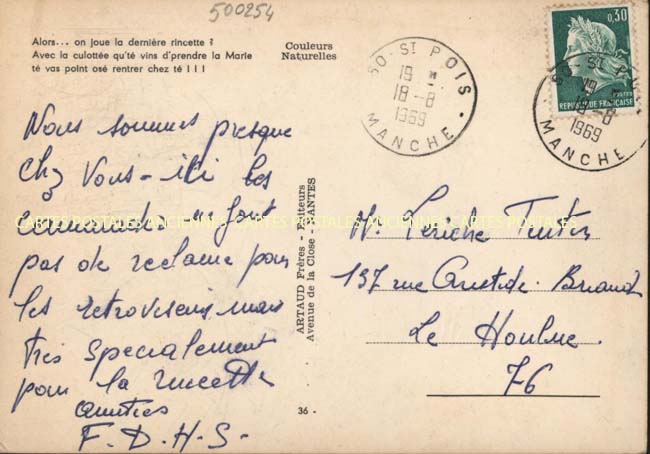 500254
Alors... on joue la dernière rincette ?
Avec la culottée qu'té vins d'prendre la Marie
té vas point osé rentrer chez té ! ! !
Couleurs
Naturelles
50 - ST POIS
19 H
18 - 8
1969
MANCHE
0,30
POSTES
REPUBLIQUE FRANÇAISE
50 - ST POIS
19 H
18 - 8
1969
MANCHE
Nous sommes presque
chez Vous - ici les
commandt ne font
pas de reclame pour
les retroviseurs mais
très specialement
pour la rincette
amities
F. D. H. S -
CARTES POSTALES ANCIENNES CARTES POSTALES ANCIENNES CARTES POSTALES
ARTAUD Frères - Editeurs
Avenue de la Close - NANTES
36 -
M. Leriche
137 rue Aristide Briand
Le Houlme
76